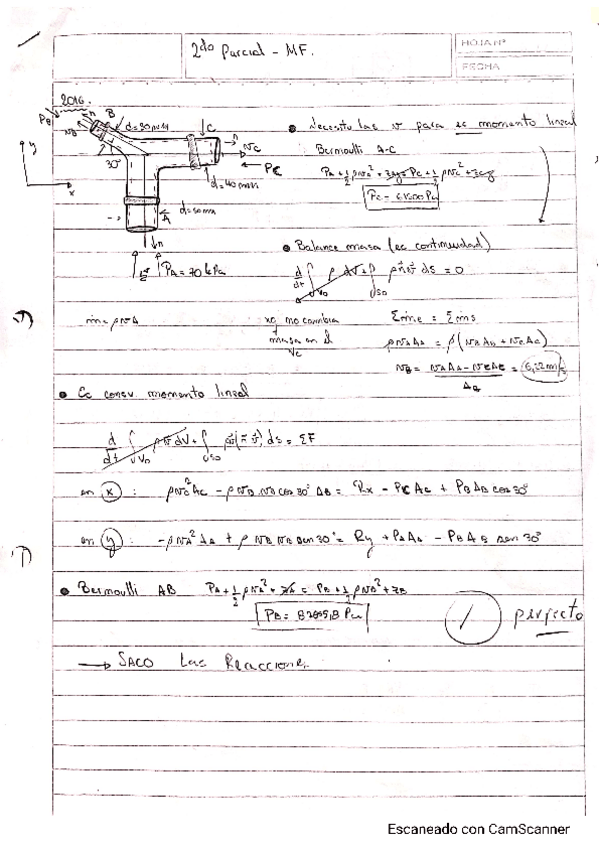 2do Parcial - MF.
HOJA Nº
FECHA
2016.
PB
n
B
d=30mm
C
n
vB
vC
30°
PC
y
x
d=40mm
d=50mm
A
n
PA = 70 kPa
Necesito las v para ec momento lineal
Bernoulli A-C
PA + 1/2 ρvA² + zAg = PC + 1/2 ρvC² + zCg
Balance masa (ec continuidad)
d/dt ∫VO ρ dV + ∫SO ρ n v ds = 0
ṁ = ρvA
xq no cambia
masa en el
VC
Σṁe = Σṁs
ρvA AA = ρ(vB AB + vC AC)
vB = (vA AA - vC AC)/AB = m/s
Ec consv. momento lineal
d/dt ∫VO ρv dV + ∫SO ρv(n v) ds = ΣF
en x : ρvC² AC - ρvB vB cos 30° AB = Rx - PC AC + PB AB cos 30°
en y : -ρvA² AA + ρ vB vB sen 30° = Ry + PA AA - PB AB sen 30°
Bernoulli AB PA + 1/2 ρvA² + zA = PB + 1/2 ρvB² + zB
perfecto
→ SACO las Reacciones
Escaneado con CamScanner